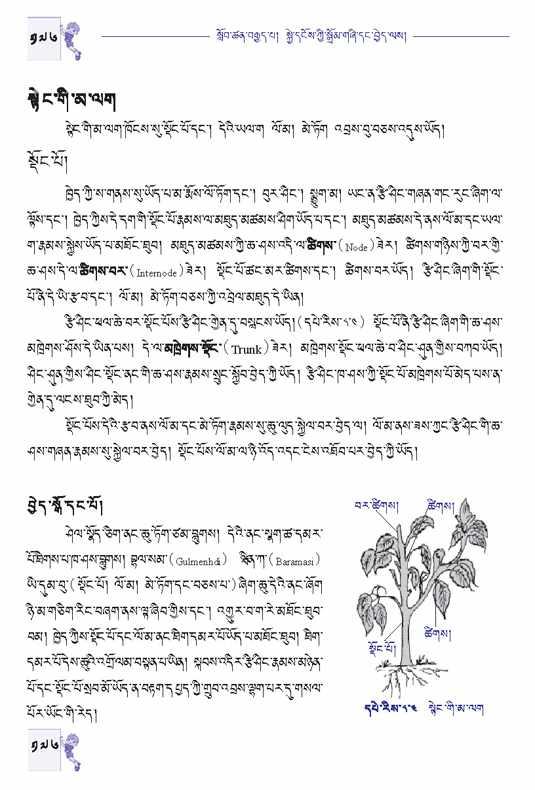 ༡༤༦
སློབ་ཚན་བརྒྱད་པ། སྐྱེ་དངོས་ཀྱི་སྒྲོམ་གཞི་དང་བྱེད་ལས།
སྟེང་གི་མ་ལག
སྟེང་གི་མ་ལག་ཁོངས་སུ་སྡོང་པོ་དང་། དེའི་ཡལ་ག ལོ་མ། མེ་ཏོག འབྲས་བུ་བཅས་འདུས་ཡོད།
སྡོང་པོ།
ཁྱེད་ཀྱི་ས་གནས་སུ་ཡོད་པ་མ་རྨོས་ལོ་ཏོག་དང་། བུར་ཤིང་། སྨྱུག་མ། ཡང་ན་རྩི་ཤིང་གཞན་གང་རུང་ཞིག་ལ་
ལྟོས་དང་། ཁྱེད་ཀྱིས་དེ་དག་གི་སྡོང་པོ་རྣམས་ལ་མཐུད་མཚམས་ཤིག་ཡོད་པ་དང་། མཐུད་མཚམས་དེ་ནས་ལོ་མ་དང་ཡལ་
ག་རྣམས་སྐྱེས་ཡོད་པ་མཐོང་ཐུབ། མཐུད་མཚམས་ཀྱི་ཆ་ཤས་འདི་ལ་ཚིགས་(Node)ཟེར། ཚིགས་གཉིས་ཀྱི་བར་གྱི་
ཆ་ཤས་དེ་ལ་ཚིགས་བར་(Internode)ཟེར། སྡོང་པོ་ཚང་མར་ཚིགས་དང་། ཚིགས་བར་ཡོད། རྩི་ཤིང་ཞིག་གི་སྡོང་
པོ་ནི་དེ་ཡི་རྩ་བ་དང་། ལོ་མ། མེ་ཏོག་བཅས་ཀྱི་འབྲེལ་མཐུད་དེ་ཡིན།
རྩི་ཤིང་ཕལ་ཆེ་བར་སྡོང་པོས་རྩི་ཤིང་གྱེན་དུ་བསླངས་ཡོད།(དཔེ་རིས་༨་༤) སྡོང་པོ་ནི་རྩི་ཤིང་ཞིག་གི་ཆ་ཤས་
མཁྲེགས་ཤོས་དེ་ཡིན་པས། དེ་ལ་མཁྲེགས་སྡོང་(Trunk)ཟེར། མཁྲེགས་སྡོང་ཕལ་ཆེ་བ་ཤིང་ཤུན་གྱིས་བཀབ་ཡོད།
ཤིང་ཤུན་གྱིས་ཤིང་སྡོང་ནང་གི་ཆ་ཤས་རྣམས་སྲུང་སྐྱོབ་བྱེད་ཀྱི་ཡོད། རྩི་ཤིང་ཁ་ཤས་ཀྱི་སྡོང་པོ་མཁྲེགས་པོ་མེད་པས་ན་
གྱེན་དུ་ལངས་ཐུབ་ཀྱི་མེད།
སྡོང་པོས་དེའི་རྩ་བ་ནས་ལོ་མ་དང་མེ་ཏོག་རྣམས་སུ་ཆུ་ལུད་སྐྱེལ་བར་བྱེད་ལ། ལོ་མ་ནས་ཟས་ཀྱང་རྩི་ཤིང་གི་ཆ་
ཤས་གཞན་རྣམས་སུ་སྐྱེལ་བར་བྱེད། སྡོང་པོས་ལོ་མ་ལ་ཉི་འོད་འདང་ངེས་འཐོབ་པར་བྱེད་ཀྱི་ཡོད།
བྱེད་སྒོ་དང་པོ།
ཤེལ་སྣོད་ཅིག་ནང་ཆུ་ཏོག་ཙམ་བླུགས། དེའི་ནང་སྣག་ཚ་དམར་
པོ་ཐིགས་པ་ཁ་ཤས་བླུགས། བྷལ་སམ་(Gulmenhdi)
(Baramasi)
ཡི་དུམ་བུ་(སྡོང་པོ། ལོ་མ། མེ་ཏོག་དང་བཅས་པ་)ཞིག་ཆུ་དེའི་ནང་ཞོག
ཉི་མ་གཅིག་རིང་བཞག་ནས་ལྟ་ཞིབ་གྱིས་དང་། འགྱུར་བ་ག་རེ་མཐོང་ཐུབ་
བམ། ཁྱེད་ཀྱིས་སྡོང་པོ་དང་ལོ་མ་ནང་ཐིག་དམར་པོ་ཡོད་པ་མཐོང་ཐུབ། ཐིག་
དམར་པོ་དེས་ཆུའི་འགྲོ་ལམ་བསྟན་པ་ཡིན། སྐབས་འདིར་རྩི་ཤིང་རྣམས་མཉེན་
པོ་དང་སྡོང་པོ་སྲབ་མོ་ཡོད་ན་བརྟག་དཔྱད་ཀྱི་གྲུབ་འབྲས་ལྷག་པར་དུ་གསལ་
པོར་ཡོང་གི་རེད།
བར་ཚིགས།
ཚིགས།
ཚིགས།
སྡོང་པོ།
དཔེ་རིས་༨་༤ སྟེང་གི་མ་ལག
༡༤༦